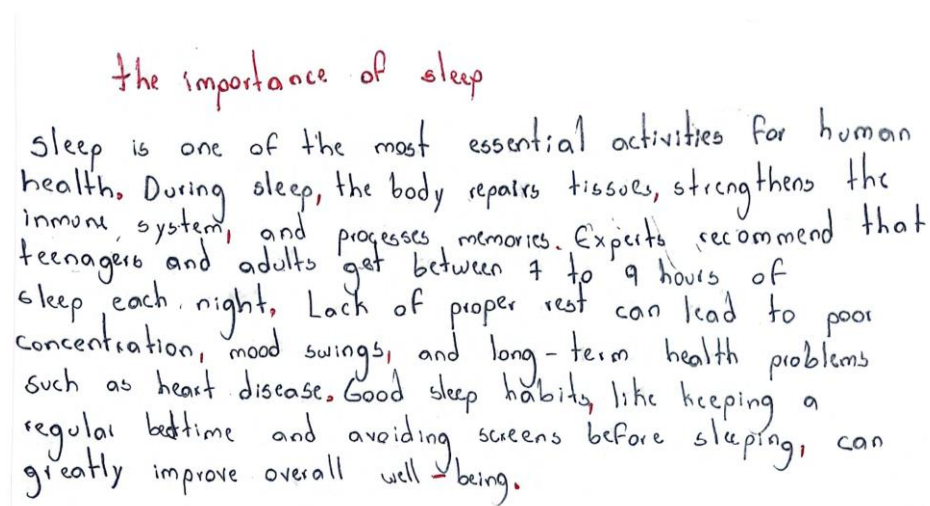 the importance of sleep
sleep is one of the most essential activities for human
health. During sleep, the body repairs tissues, strengthens the
inmune system, and processes memories. Experts recommend that
teenagers and adults get between 7 to 9 hours of
sleep each night. Lack of proper rest can lead to poor
concentration, mood swings, and long-term health problems
such as heart disease. Good sleep habits, like keeping a
regular bedtime and avoiding screens before sleeping, can
greatly improve overall well-being.